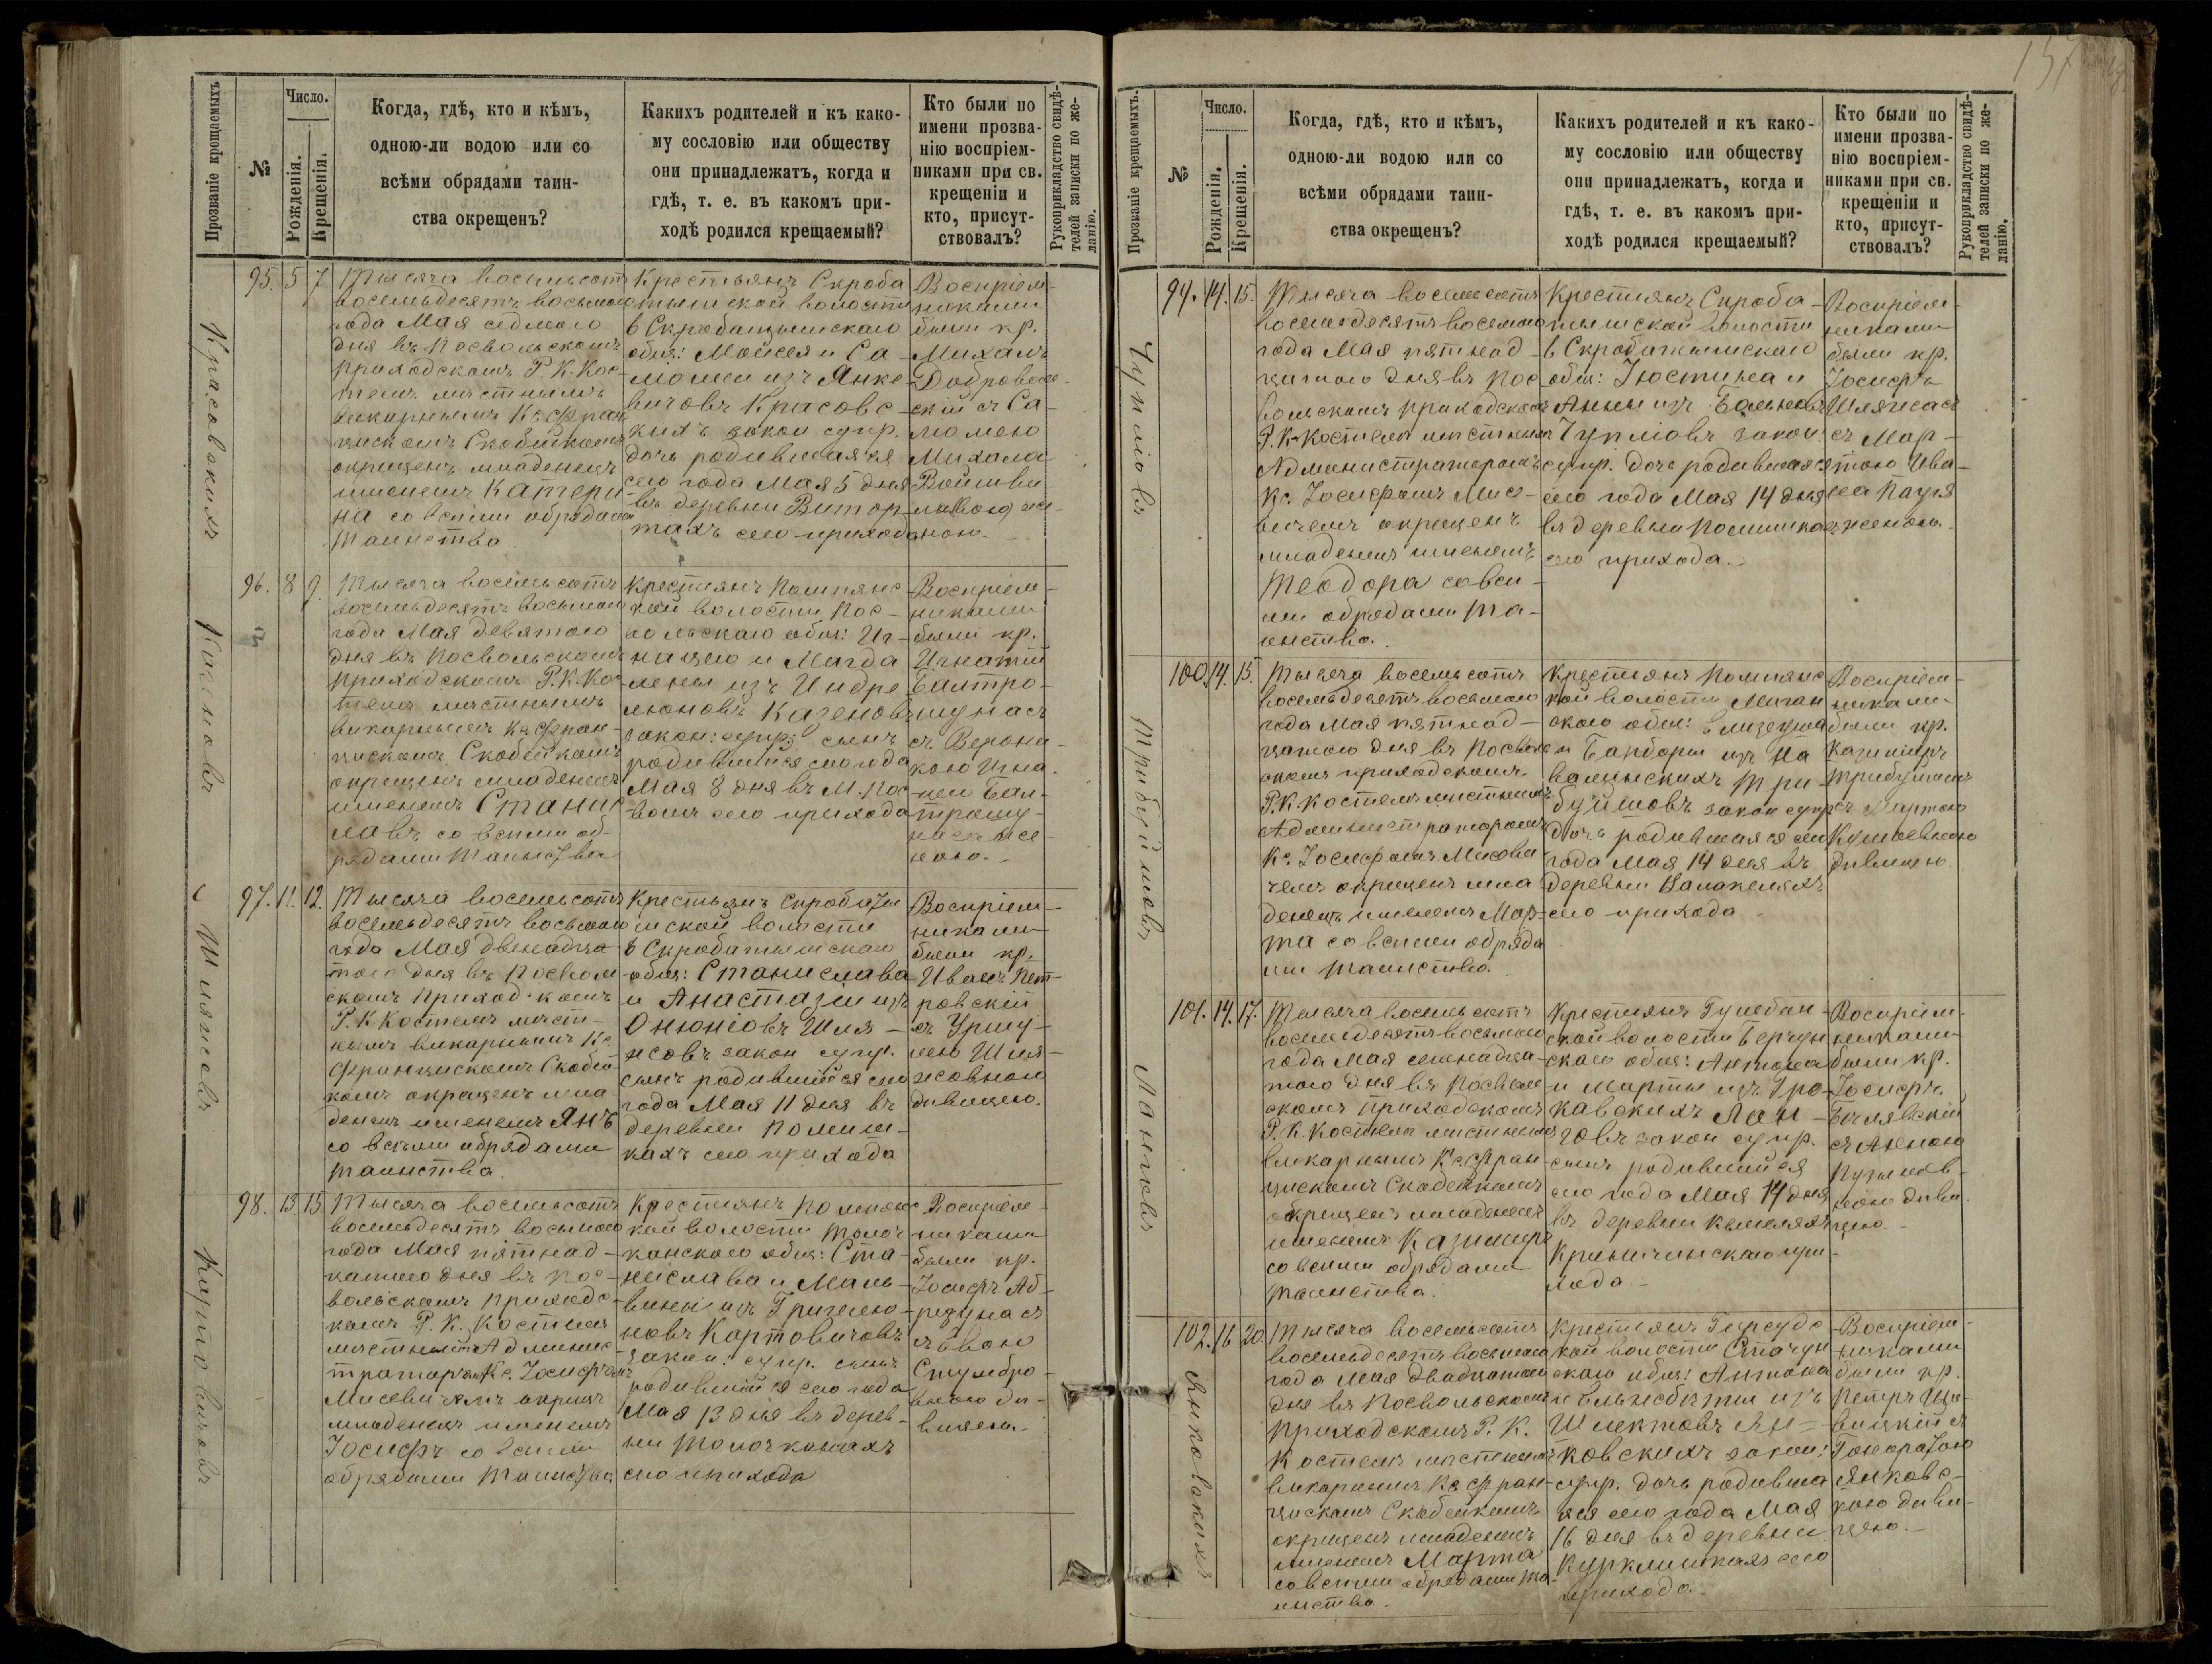 Прозваніе крещаемыхъ
№
Число.
Рожденія.
Крещенія.
Когда, гдѣ, кто и кѣмъ,
одною-ли водою или со
всѣми обрядами таин-
ства окрещенъ?
Какихъ родителей и къ како-
му сословію или обществу
они принадлежатъ, когда и
гдѣ, т. е. въ какомъ при-
ходѣ родился крещаемый?
Кто были по
имени прозва-
нію воспріем-
никами при св.
крещеніи и
кто, присут-
ствовалъ?
Рукоприкладство свидѣ-
телей записки по же-
ланію.
Красовскихъ
95. 5 7
Тысяча восемьсотъ
восемьдесятъ восьмого
года Мая седмого
дня въ Посвольскомъ
приходскомъ Р. К. Кос-
телѣ мѣстнымъ
викарнымъ Кс. Фран
цискомъ Скобейкомъ
окрещенъ младенецъ
именемъ Катери
на со всѣми обрядами
таинства
Крестьянъ Скроба
тышской волости
общ: Мойсея и Са-
ломеи изъ Янке-
вичовъ Красовс-
кихъ закон супр.
дочь родившаяся
сего года Мая 5 дня
въ деревни
сего прихода
Воспріем-
никами
были кр.
Михалъ
Доброволь-
скій съ Са-
ломею
Михала
женою.
96. 8 9.
Тысяча восемьсотъ
восемьдесятъ восьмого
года Мая девятого
дня въ Посвольскомъ
приходскомъ Р. К. Кос-
телѣ мѣстнымъ
викарнымъ Кс. Фран-
цискомъ Скобейкомъ
окрещенъ младенецъ
именемъ Станис
лавъ со всѣми об-
рядами таинства
Крестьянъ Помпянс
кой волости Пос-
вольскаго общ: Иг-
нацего и Магда
лены изъ Индре-
люновъ
закон: супр: сынъ
родившійся сего года
Мая 8 дня въ М. Пос-
волѣ сего прихода
Воспріем-
никами
были кр.
Игнатій
Балтро-
шунасъ
съ Верони-
кою Игна-
цего Бал-
трошу-
наса же-
ною.
Шляжовъ
97. 11. 12.
Тысяча восемьсотъ
восемьдесятъ восьмого
года Мая двенадца-
того дня въ Посволь
скомъ приходскомъ
Р. К Костелѣ мѣст-
нымъ викарнымъ Кс
Францискомъ Скобей
комъ окрещенъ мла
денецъ именемъ Янъ
со всѣми обрядами
таинства
Крестьянъ Скробаты
шской волости
Скробатышскаго
общ: Станислава
и Анастазіи изъ
Онюніовъ Шля-
жовъ закон супр.
сынъ родившійся сего
года Мая 11 дня въ
деревни
сего прихода
Воспріем-
никами
были кр.
Иванъ Пет-
ровскій
съ Уршу-
лею Шля-
жовною
дѣвицею.
Картовичовъ
98. 13. 15.
Тысяча восемьсотъ
восемьдесятъ восьмого
года Мая пятнад-
цатого дня въ Пос-
вольскомъ приходс-
комъ Р. К. Костелѣ
мѣстнымъ Админис-
траторомъ Кс. Іосифомъ
Мисевичемъ окрещенъ
младенецъ именемъ
Іосифъ со всѣми
обрядами таинства
Крестьянъ Помпянс
кой волости Толоч-
канского общ: Ста-
нислава и Маль-
вины изъ Григелю-
новъ Картовичовъ
закон: супр. сынъ
родившійся сего года
Мая 13 дня въ дерев-
ни Толочканахъ
сего прихода
Воспріем-
никами
были кр.
Іосифъ
съ Евою
дѣ-
вицею.
Прозваніе крещаемыхъ.
№
Число.
Рожденія.
Крещенія.
Когда, гдѣ, кто и кѣмъ,
одною-ли водою или со
всѣми обрядами таин-
ства окрещенъ?
Какихъ родителей и къ како-
му сословію или обществу
они принадлежатъ, когда и
гдѣ, т. е. въ какомъ при-
ходѣ родился крещаемый?
Кто были по
имени прозва-
нію воспріем-
никами при св.
крещеніи и
кто, присут-
ствовалъ?
Рукоприкладство свидѣ-
телей записки по же-
ланію.
Чупліовъ
99. 14. 15.
Тысяча восемьсотъ
восемьдесятъ восьмого
года Мая пятнад-
цатого дня въ Пос
вольскомъ приходскомъ
Р. К. Костелѣ мѣстнымъ
Администраторомъ
Кс. Іосифомъ Мисе-
вичемъ окрещенъ
младенецъ именемъ
Теодора со всѣ-
ми обрядами та-
инства.
Крестьянъ Скроба-
тышской волости
Скробатышскаго
общ: Іюстина и
Анны изъ
Чупліовъ закон:
супр. дочь родившаяся
сего года Мая 14 дня
въ деревни
сего прихода.
Воспріем-
никами
были кр.
Іосифъ
Шляжасъ
съ Мар-
тою Ива-
на
женою.
Трибуйшовъ
100. 14. 15.
Тысяча восемьсотъ
восемьдесятъ восьмого
года Мая пятнад-
цатого дня въ Посволь
скомъ приходскомъ
Р. К. Костелѣ мѣстнымъ
Администраторомъ
Кс. Іосифомъ Мисеви
чемъ окрещенъ мла
денецъ именемъ Мар-
та со всѣми обряда
ми таинства.
Крестьянъ Помпянс
кой волости
общ:
и Барбары изъ На
валинскихъ Три
буйшовъ закон супр
дочь родившаяся сего
года Мая 14 дня въ
деревни
сего прихода
Воспріем-
никами
были кр.
Казиміръ
съ Мартою
дѣвицею
Ланговъ
101. 14. 17.
Тысяча восемьсотъ
восемьдесятъ восьмого
года Мая семнадца-
того дня въ Посволь
скомъ приходскомъ
Р. К. Костелѣ мѣстнымъ
викарнымъ Кс Фран
цискомъ Скобейкомъ
окрещенъ младенецъ
именемъ Казимиръ
со всѣми обрядами
таинства.
Крестьянъ
волости
общ: Антона
и Марты изъ Гро-
кавскихъ Лан-
говъ закон супр.
сынъ родившійся
сего года Мая 14 дня
въ деревни
Криничинскаго при-
хода.
Воспріем-
никами
были кр.
Іосифъ
съ Анною
дѣви
цею.
Янковскихъ
102. 16 20.
Тысяча восемьсотъ
восемьдесятъ восьмого
года Мая двадцатого
дня въ Посвольскомъ
приходскомъ Р. К.
Костелѣ мѣстнымъ
викарнымъ Кс Фран-
цискомъ Скобейкомъ
окрещенъ младенецъ
именемъ Марта
со всѣми обрядами та-
инства.
Крестьянъ
кой волости
общ: Антона
и Ельжбеты изъ
Шлектовъ Ян-
ковскихъ закон:
супр. дочь родивша
яся сего года Мая
16 дня въ деревни
сего
прихода.
Воспріем-
никами
были кр.
Петръ
съ
Гоноратою
Янковс-
кою дѣви-
цею.